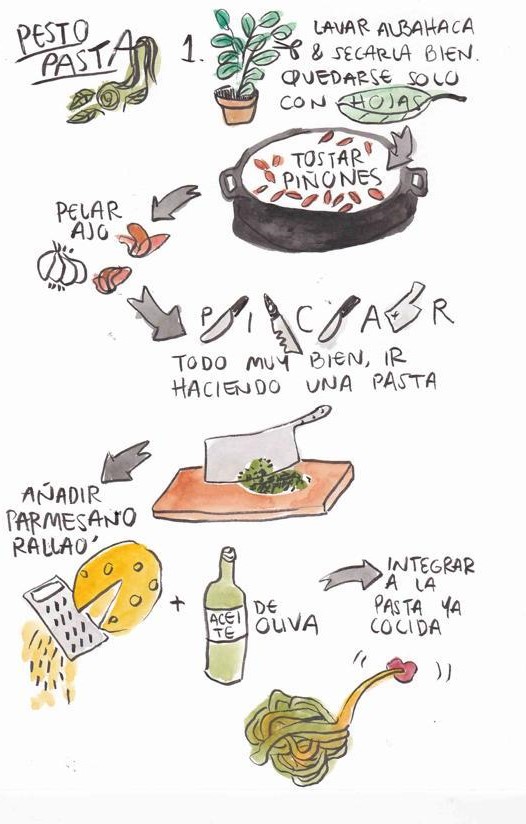 PESTO
PASTA
1.
LAVAR ALBAHACA
& SECARLA BIEN.
QUEDARSE SOLO
CON HOJAS
TOSTAR
PIÑONES
PELAR
AJO
PICAR
TODO MUY BIEN, IR
HACIENDO UNA PASTA
AÑADIR
PARMESANO
RALLAO'
+
ACEI
TE
DE
OLIVA
INTEGRAR
A LA
PASTA YA
COCIDA